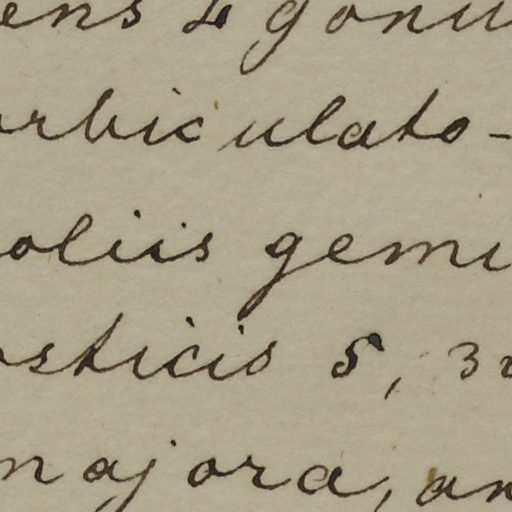 ens 4 gonu
rbiculato-
oliis gemi
osticis 5, 3
majora, an